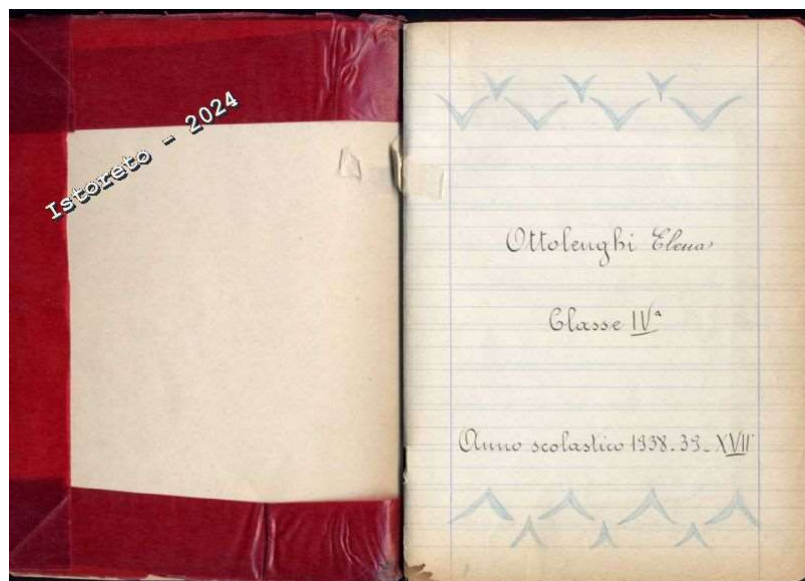 Istoreto - 2024
Ottolenghi Elena
Classe IVª
Anno scolastico 1938-39-XVII